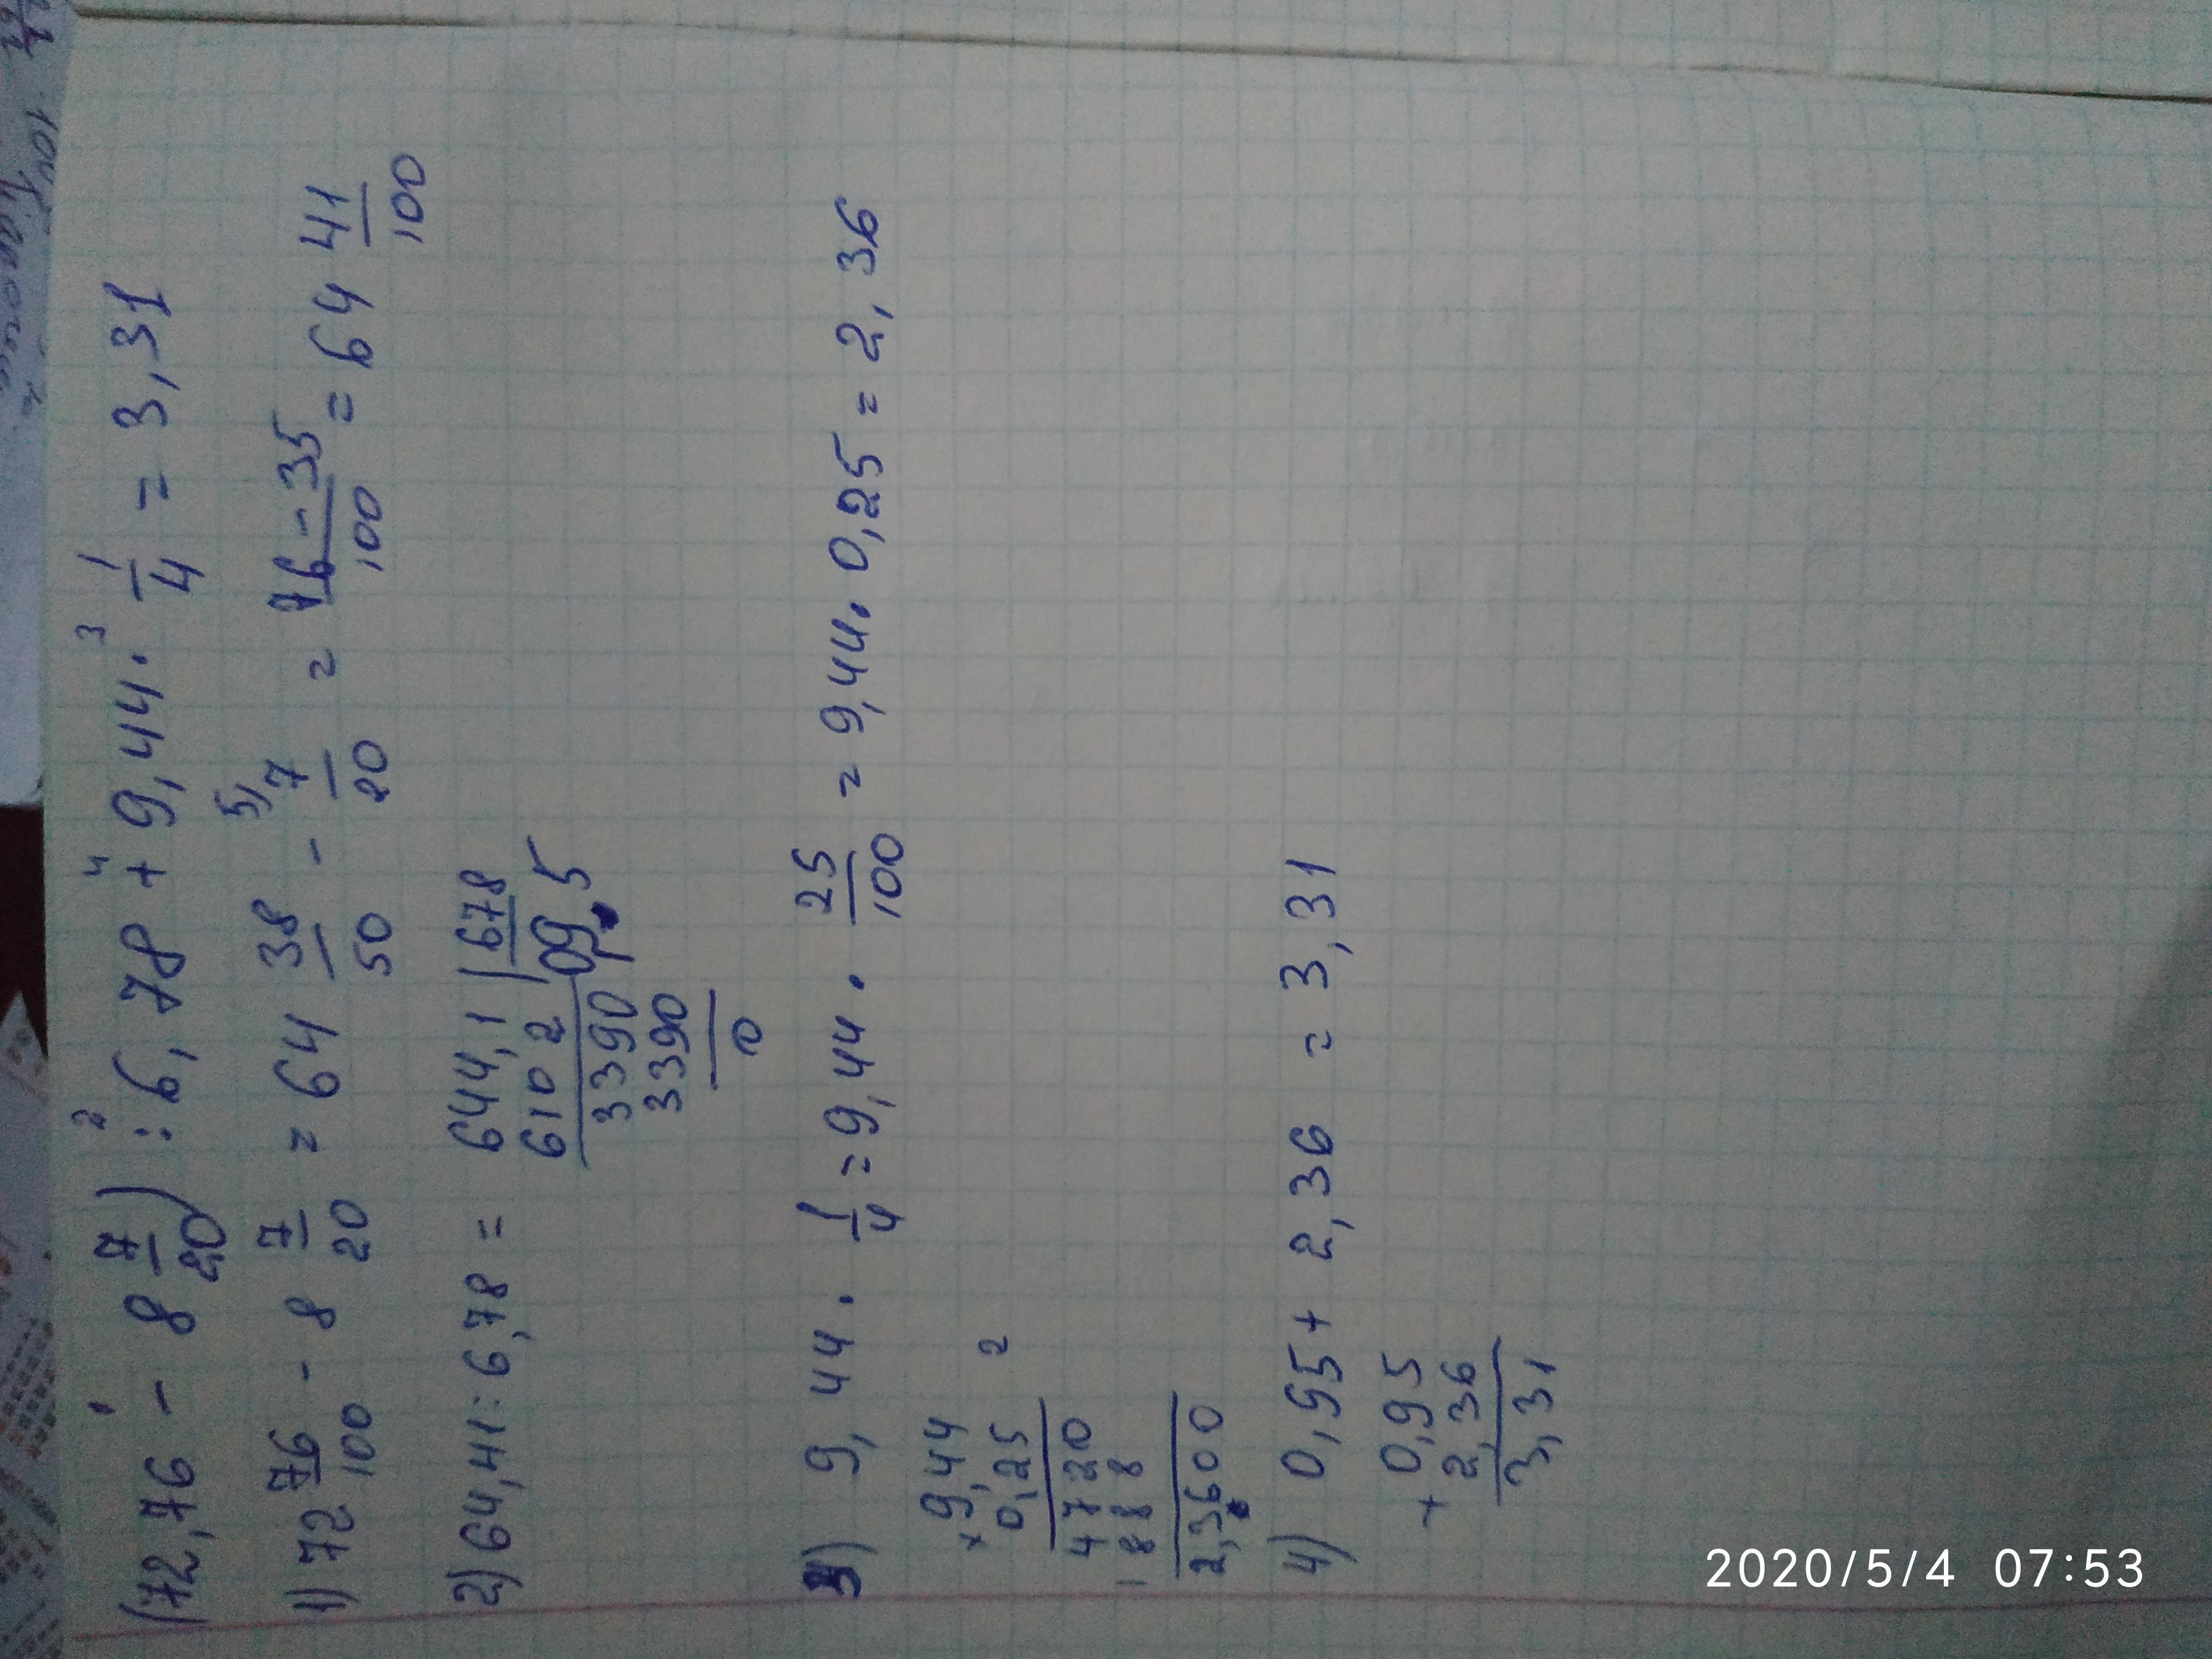 (72,76 - 8 7/20) : 6,78 + 9,44 · 1/4 = 3,31
1) 72 76/100 - 8 7/20 = 64 38/50 - 7/20 = 76-35/100 = 64 41/100
2) 64,41 : 6,78 =
644,1 | 678
6102 | 0,95
3390
3390
0
3) 9,44 · 1/4 = 9,44 · 25/100 = 9,44 · 0,25 = 2,36
× 9,44
0,25
4720
1888
2,3600
4) 0,95 + 2,36 = 3,31
+ 0,95
2,36
3,31
2020/5/4 07:53